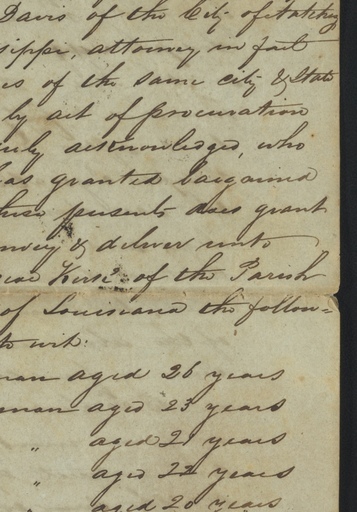 Davis of the City of Natchez
sippi, attorney in fact
es of the same city & State
by act of procuration
uly acknowledged, who
has granted bargained
these presents does grant
nvey & deliver unto
of the Parish
of Louisiana the follow=
to wit:
man aged 26 years
man aged 23 years
" aged 21 years
" aged 22 years
" aged 20 years